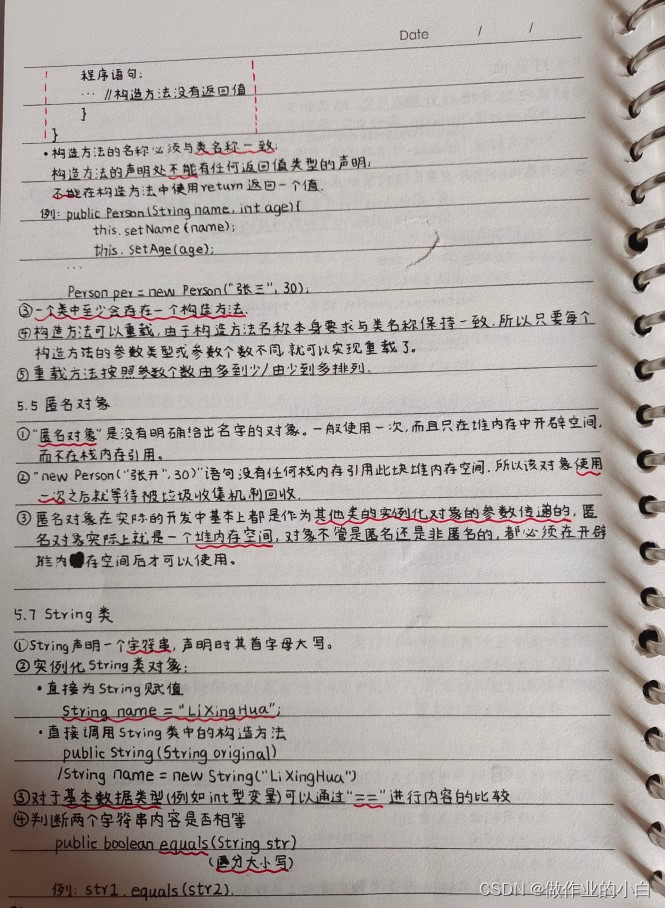 Date / /
程序语句;
… //构造方法没有返回值
}
}
·构造方法的名称必须与类名称一致;
构造方法的声明处不能有任何返回值类型的声明;
不能在构造方法中使用return返回一个值.
例: public Person(String name, int age){
this.setName(name);
this.setAge(age);
…
Person per = new Person("张三", 30);
③一个类中至少会存在一个构造方法.
④构造方法可以重载,由于构造方法名称本身要求与类名称保持一致,所以只要每个
构造方法的参数类型或参数个数不同,就可以实现重载了。
⑤重载方法按照参数个数由多到少/由少到多排列.
5.5 匿名对象
①"匿名对象"是没有明确给出名字的对象。一般使用一次,而且只在堆内存中开辟空间,
而不在栈内存引用。
②"new Person("张开",30)"语句没有任何栈内存引用此块堆内存空间.所以该对象使用
一次之后就等待被垃圾收集机制回收.
③匿名对象在实际的开发中基本上都是作为其他类的实例化对象的参数传递的,匿
名对象实际上就是一个堆内存空间,对象不管是匿名还是非匿名的,都必须在开辟
存空间后才可以使用。
5.7 String 类
①String声明一个字符串,声明时其首字母大写。
②实例化String类对象:
·直接为String赋值
String name = "LiXingHua";
·直接调用String类中的构造方法
public String(String original)
/String name = new String("LiXingHua")
③对于基本数据类型(例如int型变量)可以通过"=="进行内容的比较
④判断两个字符串内容是否相等
public boolean equals(String str)
(区分大小写)
例: str1.equals(str2).
CSDN @做作业的小白